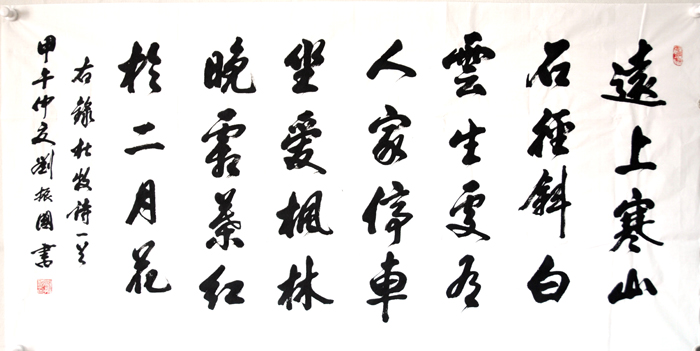 遠上寒山
石徑斜白
雲生處有
人家停車
坐愛楓林
晚霜葉紅
於二月花
右錄杜牧詩一首
甲午仲夏劉振國書